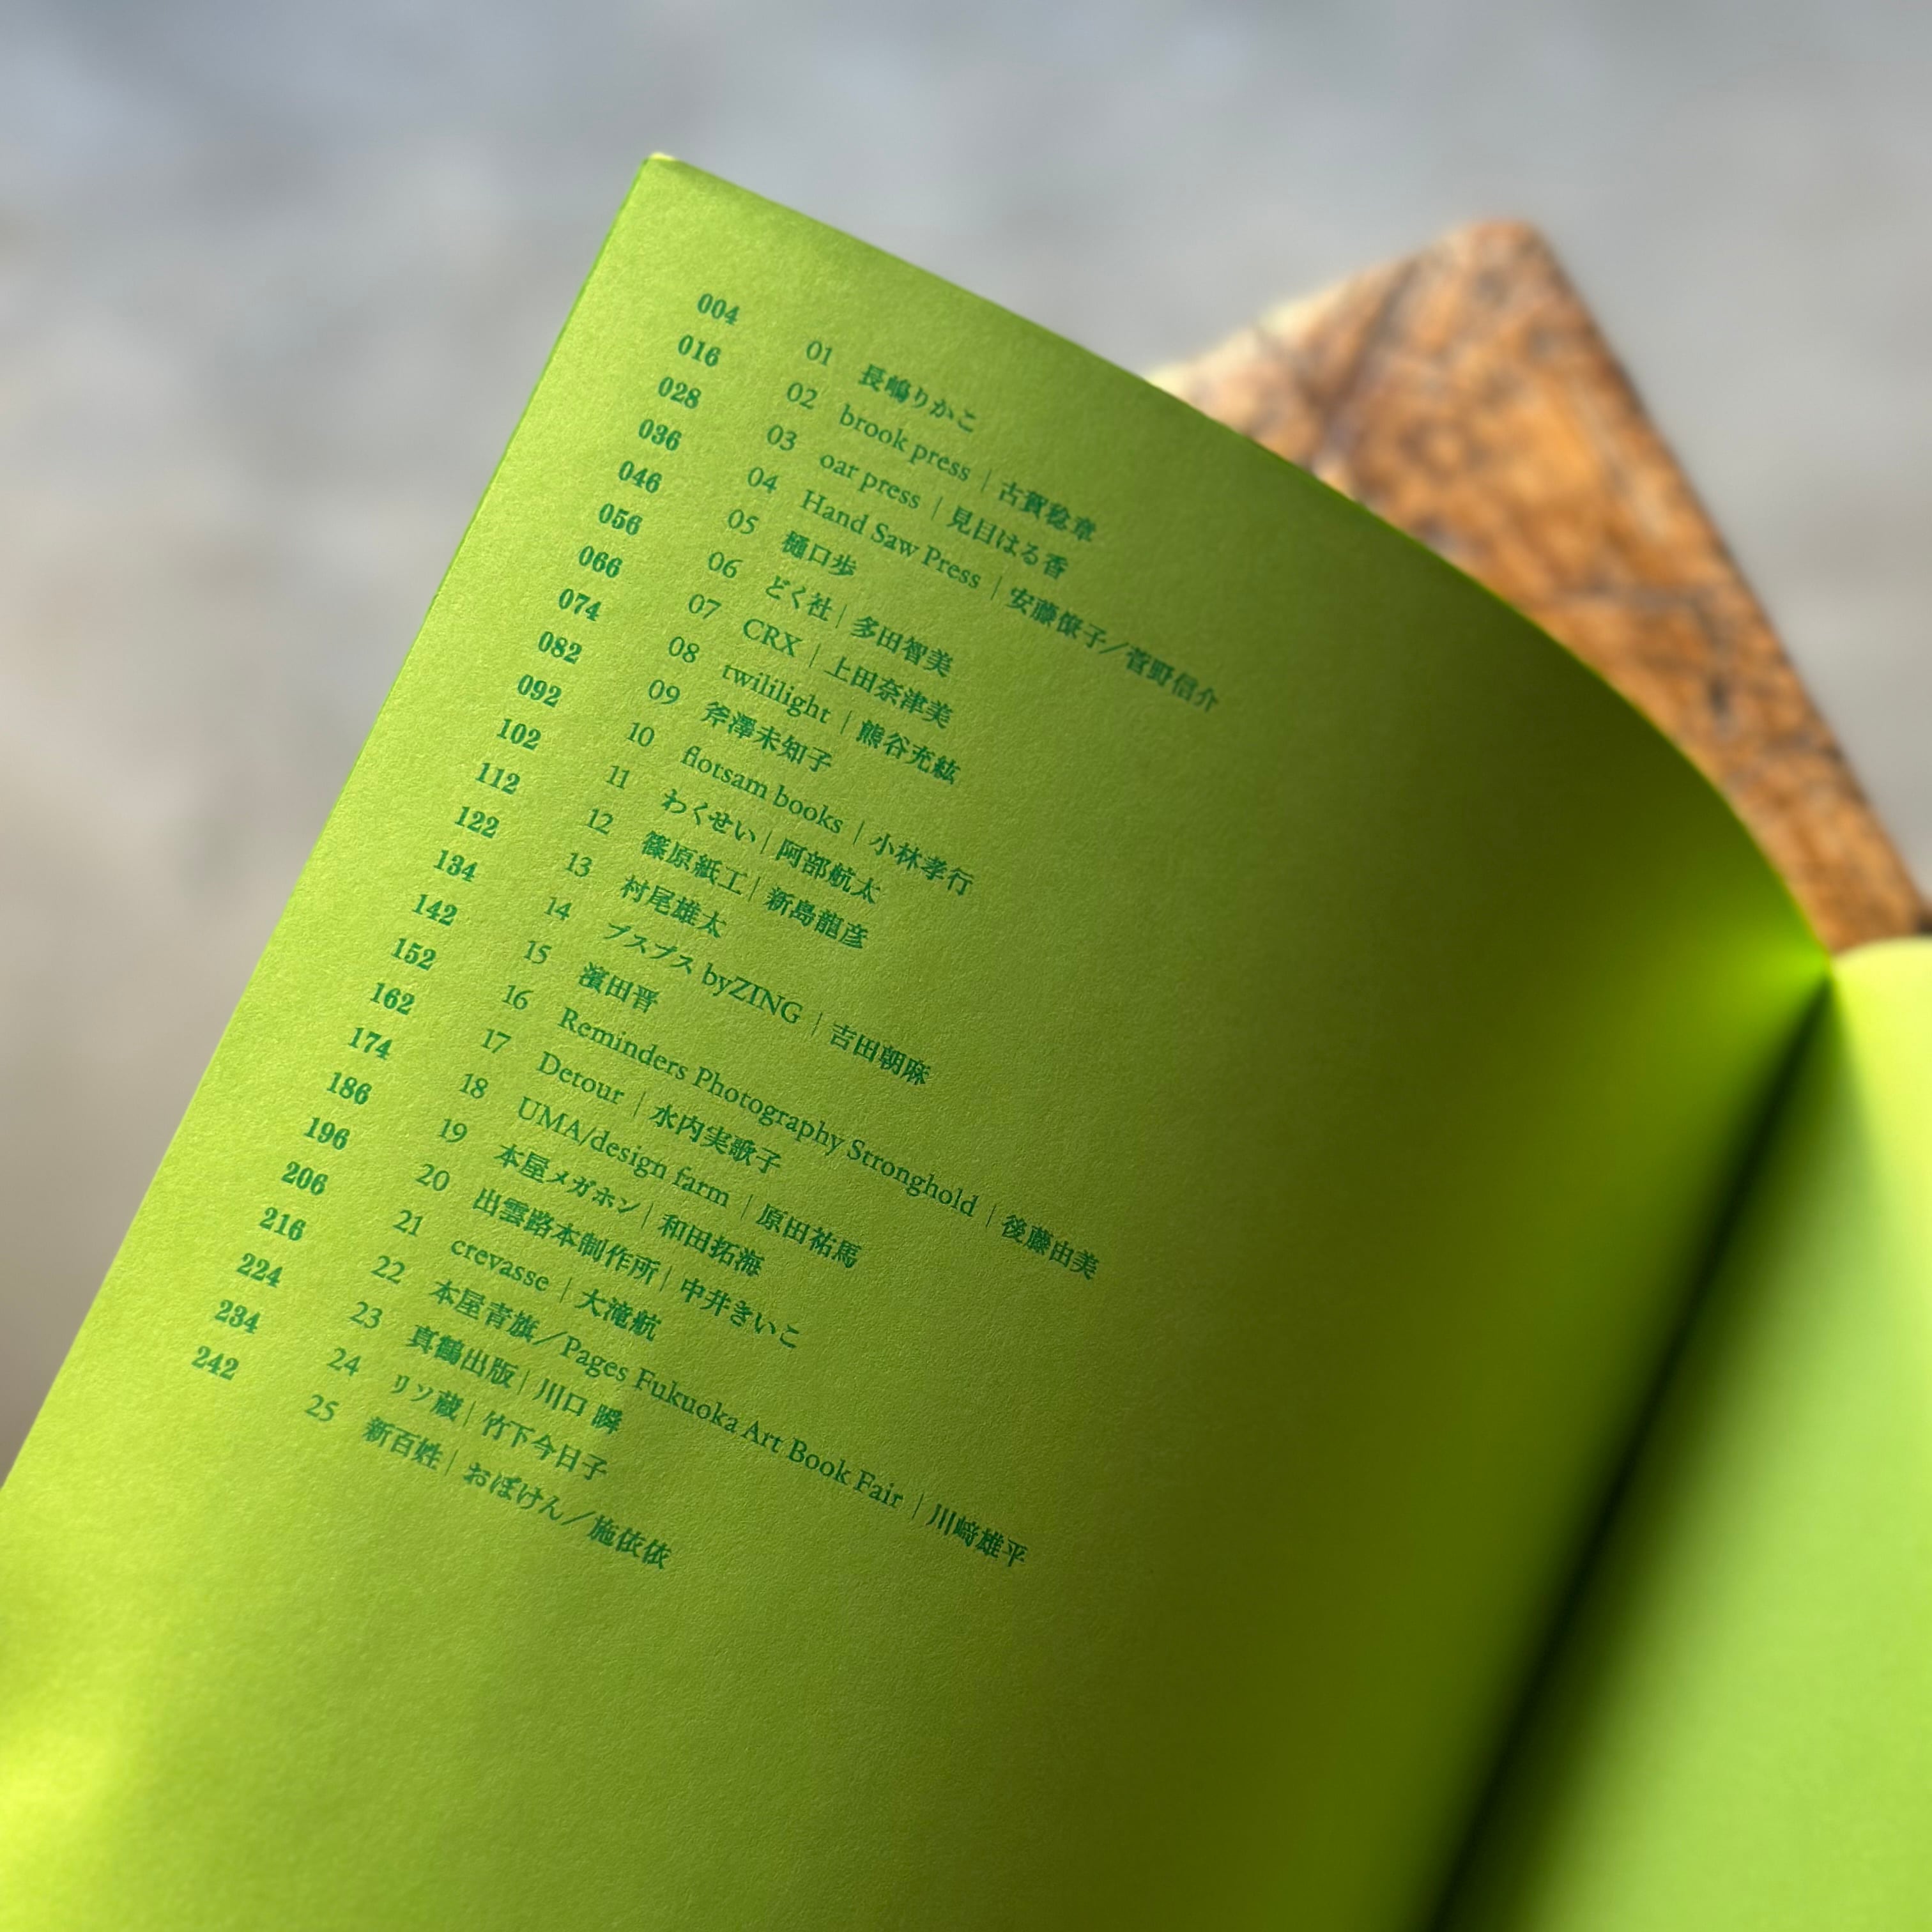 004 01 長嶋りかこ
016 02 brook press | 古賀稔章
028 03 oar press | 見目はる香
036 04 Hand Saw Press | 安藤僚子／菅野信介
046 05 樋口歩
056 06 どく社 | 多田智美
066 07 CRX | 上田奈津美
074 08 twililight | 熊谷充紘
082 09 斧澤未知子
092 10 flotsam books | 小林孝行
102 11 わくせい | 阿部航太
112 12 篠原紙工 | 新島龍彦
122 13 村尾雄太
134 14 プスプス byZING | 吉田朝麻
142 15 濱田晋
152 16 Reminders Photography Stronghold | 後藤由美
162 17 Detour | 水内実歌子
174 18 UMA/design farm | 原田祐馬
186 19 本屋メガホン | 和田拓海
196 20 出雲路本制作所 | 中井きいこ
206 21 crevasse | 大滝航
216 22 本屋青旗／Pages Fukuoka Art Book Fair | 川﨑雄平
224 23 真鶴出版 | 川口 瞬
234 24 リソ蔵 | 竹下今日子
242 25 新百姓 | おぼけん／施依依